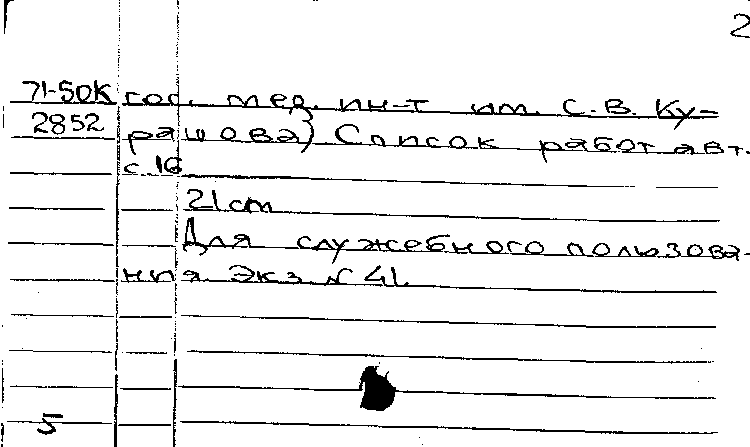 2
71-50К гос. мед. ин-т им. С.В. Ку-
2852 рашова) Список работ авт.
с. 16
21 cm
Для служебного пользова-
ния. Экз. № 41.
5